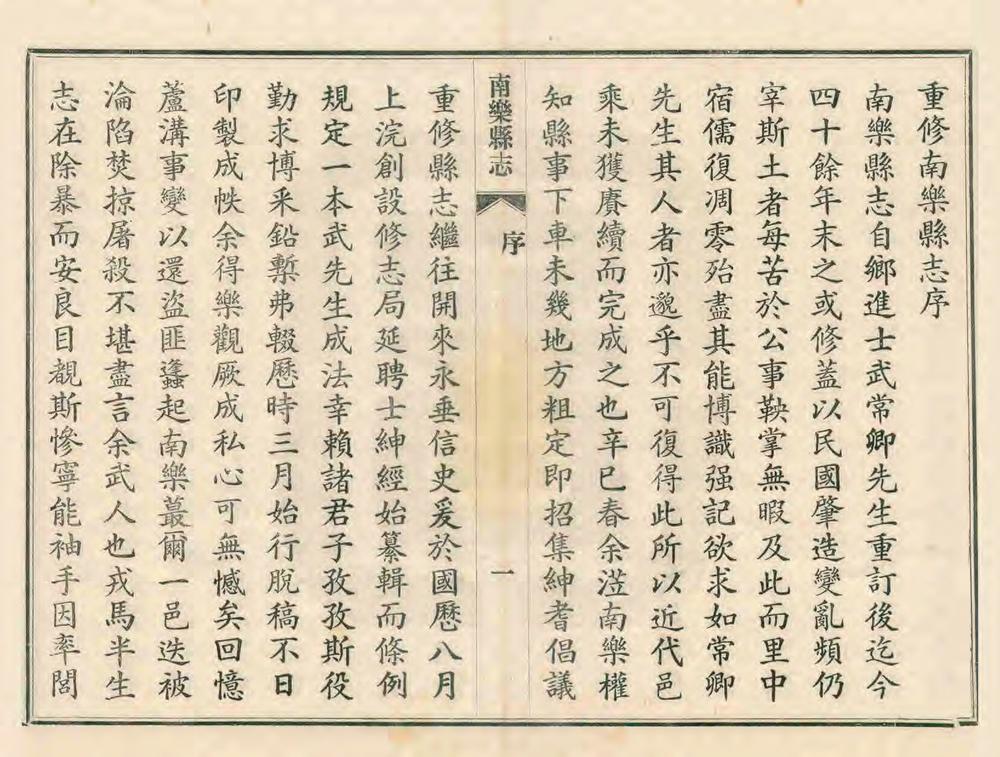 重修南樂縣志序
南樂縣志自鄉進士武常卿先生重訂後迄今
四十餘年末之或修蓋以民國肇造變亂頻仍
宰斯土者每苦於公事鞅掌無暇及此而里中
宿儒復凋零殆盡其能博識强記欲求如常卿
先生其人者亦邈乎不可復得此所以近代邑
乘未獲賡續而完成之也辛巳春余涖南樂權
知縣事下車未幾地方粗定即招集紳耆倡議
南樂縣志
序
一
重修縣志繼往開來永垂信史爰於國曆八月
上浣創設修志局延聘士紳經始纂輯而條例
規定一本武先生成法幸賴諸君子孜孜斯役
勤求博采鉛槧弗輟歷時三月始行脫稿不日
印製成帙余得樂觀厥成私心可無憾矣回憶
蘆溝事變以還盜匪蠭起南樂蕞爾一邑迭被
淪陷焚掠屠殺不堪盡言余武人也戎馬半生
志在除暴而安良目覩斯慘寧能袖手因率閤